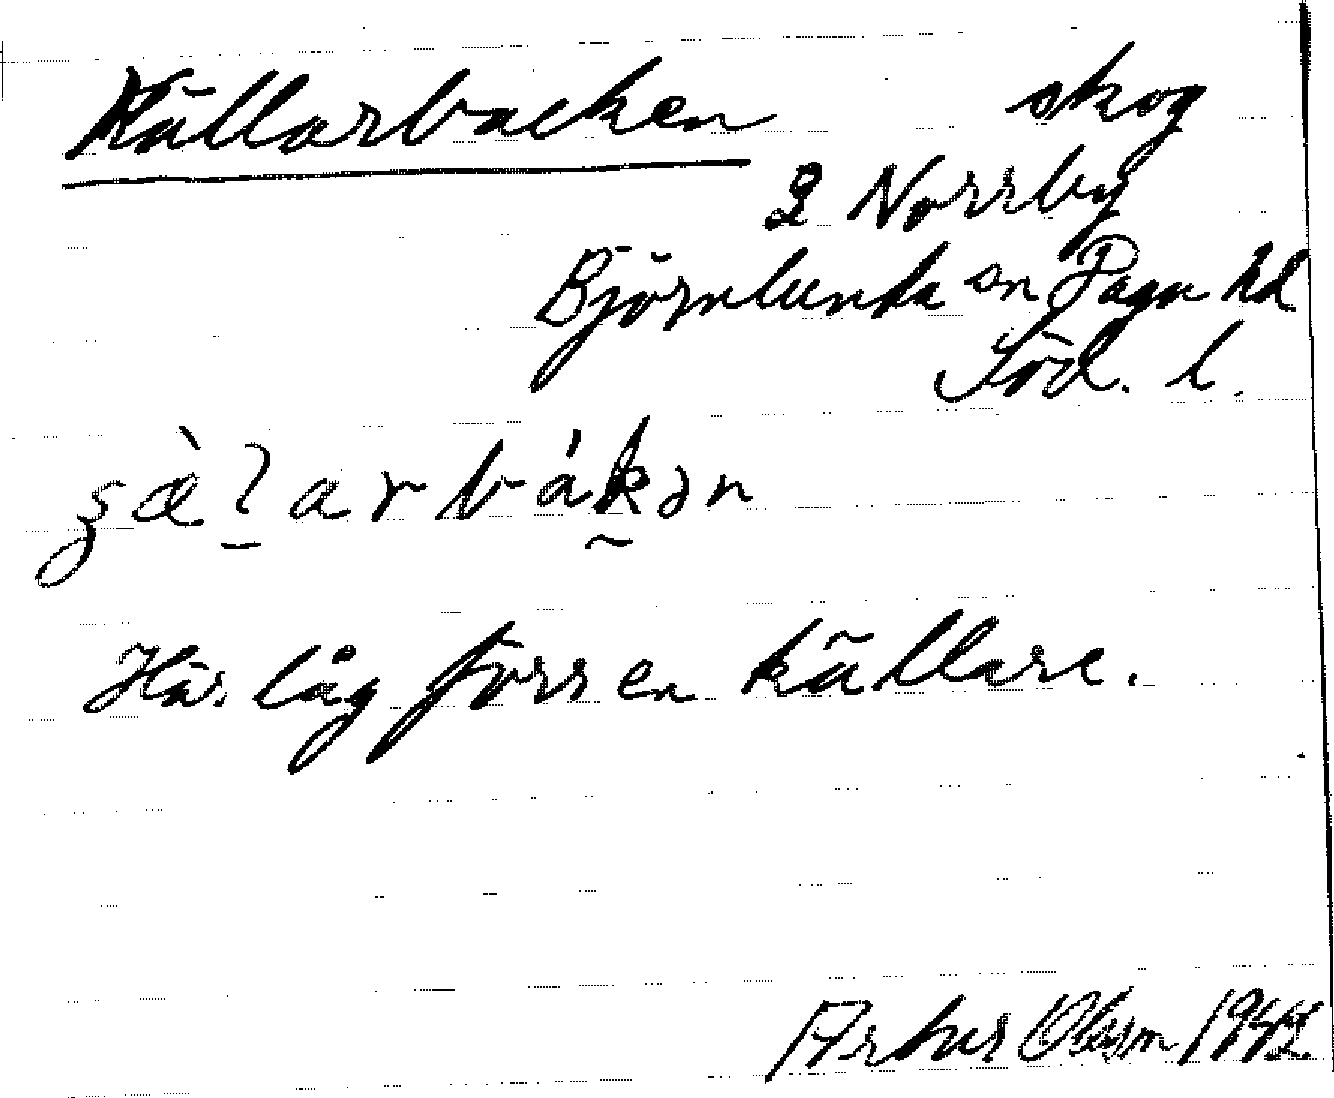 Källarbacken skog
2 Norrby
Björnlunda sn Daga hd
Söd. l.
Här låg förr en källare.
Artur Olsson 1942